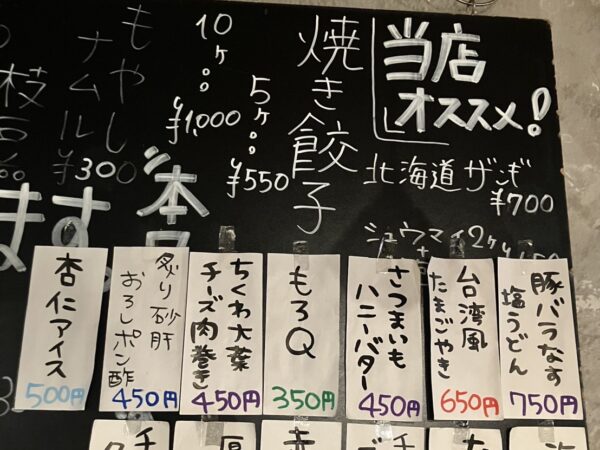 当店
オススメ!
北海道ザンギ
¥700
シュウマイ2ヶ
焼き餃子
5ヶ
¥550
10ヶ
¥1,000
もやし
ナムル
¥300
枝豆
ます。
豚バラなす
塩うどん
750円
台湾風
たまごやき
650円
さつまいも
ハニーバター
450円
もろQ
350円
ちくわ大葉
チーズ肉巻き
450円
炙り砂肝
おろしポン酢
450円
杏仁アイス
500円